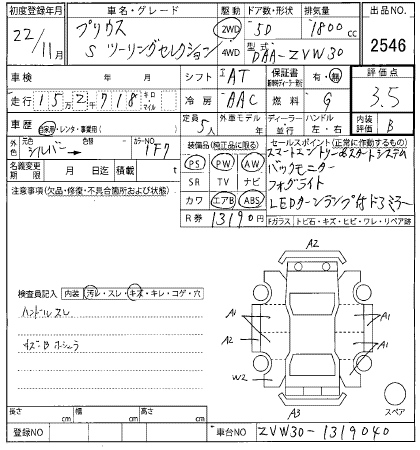 初度登録年月 車名・グレード 駆動 ドア数・形状 排気量 出品NO.
22/11月 プリウス S ツーリングセレクション 2WD 4WD 5D 1800cc 2546
型式 DAA-ZVW30
車検 年 月 シフト IAT 保証書 有・無 評価点
走行 15万2千718 キロ・マイル 冷房 AAC 燃料 G 3.5
車歴 自家用・レンタ・事業用( ) 定員 5人 外車モデル 年 ディーラー 並行 ハンドル 左・右 内装評価 B
元色 シルバー→ 色替 カラーNO 1F7
名義変更期限 月 日迄 積載 t
装備品(純正品に限る)
PS PW AW
SR TV ナビ
カワ エアB ABS
R券 13190円
セールスポイント(正常に作動するもの)
スマートエントリー&スタートシステム
バックモニター
フォグライト
LEDターンランプ付ドアミラー
Fガラス トビ石・キズ・ヒビ・ワレ・リペア跡
注意事項(欠品・修復・不具合箇所および状態)
検査員記入 内装 汚レ・スレ・キズ・キレ・コゲ・穴
ハンドルスレ
A2
A1 A1
A2 A1
W2
A3
スペア
長さ cm 幅 cm 高さ cm
登録NO 車台NO ZVW30-1319040